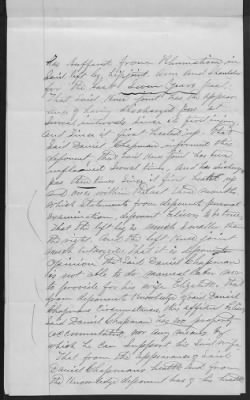 has suffered from Rheumatism in
said left leg, hip joint, arm and shoulder
for the last Seven Years past.
That said knee joint has the appear-
ance of having discharged pus at
several intervals since its first injury
and since it first healed up. That
said Daniel Chapman informed this
deponent that said knee joint has been
several times, and has discharged
pus three times since it first healed up
and once within last month
which statements from deponents personal
examination, deponent believes to be true
That the left leg is much smaller than
the right and the left knee joint
much enlarged. That in deponents
Opinion, the said Daniel Chapman
is not able to do manual labor nor
to provide for his wife Elizabeth. That
from deponents knowledge of said Daniel
Chapmans circumstances, this affiant believes
said Daniel Chapman has no property
accumulated, nor any means by
which he can support his said wife
That from the appearance of said
Daniel Chapmans health and from
the knowledge deponent has of his health